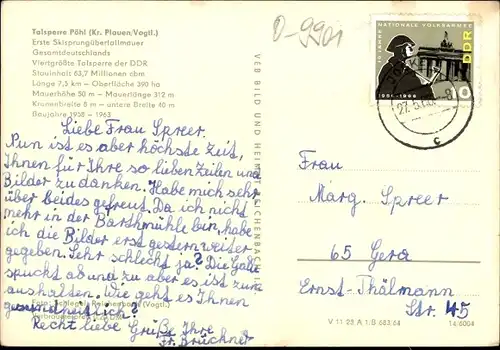 Talsperre Pöhl (Kr. Plauen/Vogtl.)
Erste Skisprungüberfallmauer
Gesamtdeutschlands
Viertgrößte Talsperre der DDR
Stauinhalt 63,7 Millionen cbm
Länge 7,5 km – Oberfläche 390 ha
Mauerhöhe 50 m – Mauerlänge 312 m
Kronenbreite 6 m – untere Breite 40 m
Baujahre 1958 – 1963
Liebe Frau Spreer.
Nun ist es aber höchste Zeit,
Ihnen für Ihre so lieben Zeilen und
Bilder zu danken. Habe mich sehr
über beides gefreut. Da ich nicht
mehr in der Barthmühle bin, habe
ich die Bilder erst gestern weiter
gegeben. Sehr schlecht ja? Die Galle
spuckt ab und zu aber es ist zum
aushalten. Wie geht es Ihnen
gesundheitlich?
Recht liebe Grüße Ihre
Fr. Brückner
VEB BILD UND HEIMAT REICHENBACH
D-9901
10 JAHRE NATIONALE VOLKSARMEE
DDR
1956-1966
10
27.5.
c
Frau
Marg. Spreer
65 Gera
Ernst-Thälmann
Str. 45
V 11 28 A 1/B 683/64
14/6004